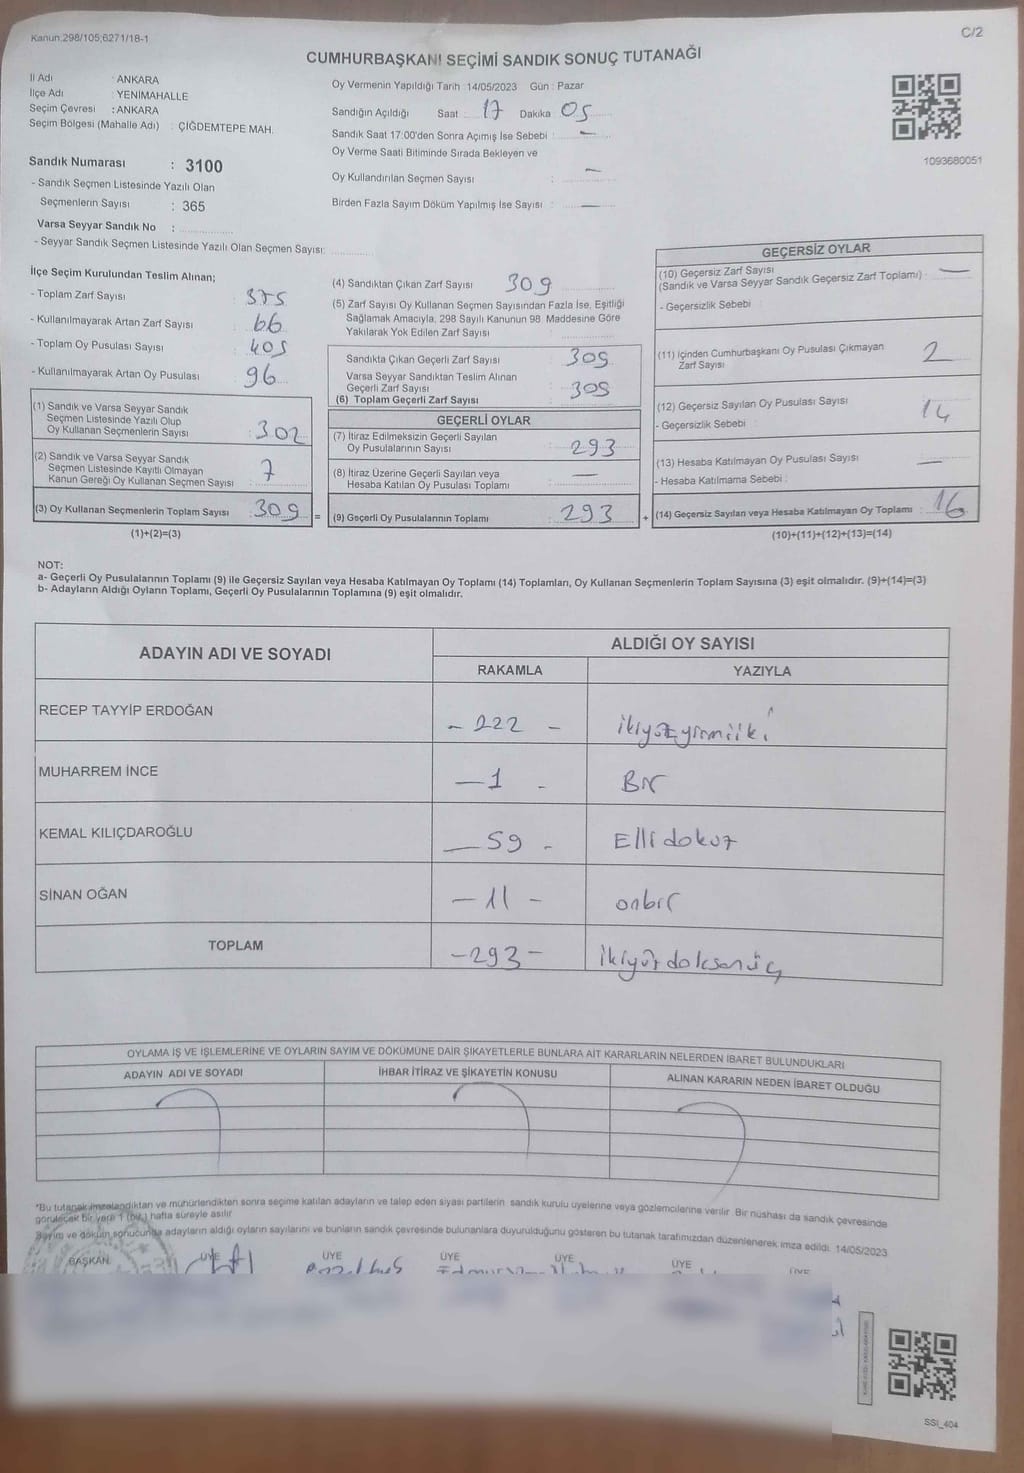 Kanun:298/105;6271/18-1
C/2
CUMHURBAŞKANI SEÇİMİ SANDIK SONUÇ TUTANAĞI
İl Adı : ANKARA
İlçe Adı : YENİMAHALLE
Seçim Çevresi : ANKARA
Seçim Bölgesi (Mahalle Adı) : ÇİĞDEMTEPE MAH.
Sandık Numarası : 3100
- Sandık Seçmen Listesinde Yazılı Olan
Seçmenlerin Sayısı : 365
Varsa Seyyar Sandık No :
- Seyyar Sandık Seçmen Listesinde Yazılı Olan Seçmen Sayısı:
Oy Vermenin Yapıldığı Tarih :14/05/2023 Gün : Pazar
Sandığın Açıldığı Saat : 17 Dakika 05
Sandık Saat 17:00'den Sonra Açımış İse Sebebi : —
Oy Verme Saati Bitiminde Sırada Bekleyen ve
Oy Kullandırılan Seçmen Sayısı : —
Birden Fazla Sayım Döküm Yapılmış İse Sayısı : —
1093680051
İlçe Seçim Kurulundan Teslim Alınan;
- Toplam Zarf Sayısı : 375
- Kullanılmayarak Artan Zarf Sayısı : 66
- Toplam Oy Pusulası Sayısı : 405
- Kullanılmayarak Artan Oy Pusulası : 96
(1) Sandık ve Varsa Seyyar Sandık
Seçmen Listesinde Yazılı Olup
Oy Kullanan Seçmenlerin Sayısı : 302
(2) Sandık ve Varsa Seyyar Sandık
Seçmen Listesinde Kayıtlı Olmayan
Kanun Gereği Oy Kullanan Seçmen Sayısı : 7
(3) Oy Kullanan Seçmenlerin Toplam Sayısı : 309 =
(1)+(2)=(3)
(4) Sandıktan Çıkan Zarf Sayısı : 309
(5) Zarf Sayısı Oy Kullanan Seçmen Sayısından Fazla İse, Eşitliği
Sağlamak Amacıyla, 298 Sayılı Kanunun 98. Maddesine Göre
Yakılarak Yok Edilen Zarf Sayısı :
Sandıkta Çıkan Geçerli Zarf Sayısı : 309
Varsa Seyyar Sandıktan Teslim Alınan
Geçerli Zarf Sayısı
(6) Toplam Geçerli Zarf Sayısı : 309
GEÇERLİ OYLAR
(7) İtiraz Edilmeksizin Geçerli Sayılan
Oy Pusulalarının Sayısı : 293
(8) İtiraz Üzerine Geçerli Sayılan veya
Hesaba Katılan Oy Pusulası Toplamı : —
(9) Geçerli Oy Pusulalarının Toplamı : 293 +
GEÇERSİZ OYLAR
(10) Geçersiz Zarf Sayısı
(Sandık ve Varsa Seyyar Sandık Geçersiz Zarf Toplamı) : —
- Geçersizlik Sebebi :
(11) İçinden Cumhurbaşkanı Oy Pusulası Çıkmayan
Zarf Sayısı : 2
(12) Geçersiz Sayılan Oy Pusulası Sayısı : 14
- Geçersizlik Sebebi :
(13) Hesaba Katılmayan Oy Pusulası Sayısı : —
- Hesaba Katılmama Sebebi :
(14) Geçersiz Sayılan veya Hesaba Katılmayan Oy Toplamı : 16
(10)+(11)+(12)+(13)=(14)
NOT:
a- Geçerli Oy Pusulalarının Toplamı (9) ile Geçersiz Sayılan veya Hesaba Katılmayan Oy Toplamı (14) Toplamları, Oy Kullanan Seçmenlerin Toplam Sayısına (3) eşit olmalıdır. (9)+(14)=(3)
b- Adayların Aldığı Oyların Toplamı, Geçerli Oy Pusulalarının Toplamına (9) eşit olmalıdır.
ADAYIN ADI VE SOYADI
ALDIĞI OY SAYISI
RAKAMLA YAZIYLA
RECEP TAYYİP ERDOĞAN - 222 - ikiyüzyirmiiki
MUHARREM İNCE - 1 - Bir
KEMAL KILIÇDAROĞLU - 59 - Elli dokuz
SİNAN OĞAN - 11 - onbir
TOPLAM - 293 - ikiyüzdoksanüç
OYLAMA İŞ VE İŞLEMLERİNE VE OYLARIN SAYIM VE DÖKÜMÜNE DAİR ŞİKAYETLERLE BUNLARA AİT KARARLARIN NELERDEN İBARET BULUNDUKLARI
ADAYIN ADI VE SOYADI İHBAR İTİRAZ VE ŞİKAYETİN KONUSU ALINAN KARARIN NEDEN İBARET OLDUĞU
*Bu tutanak imzalandıktan ve mühürlendikten sonra seçime katılan adayların ve talep eden siyasi partilerin sandık kurulu üyelerine veya gözlemcilerine verilir. Bir nüshası da sandık çevresinde
görülecek bir yere 1 (bir) hafta süreyle asılır.
Sayım ve döküm sonucunda adayların aldığı oyların sayılarını ve bunların sandık çevresinde bulunanlara duyurulduğunu gösteren bu tutanak tarafımızdan düzenlenerek imza edildi. 14/05/2023
BAŞKAN ÜYE ÜYE ÜYE ÜYE ÜYE ÜYE
SSI_404